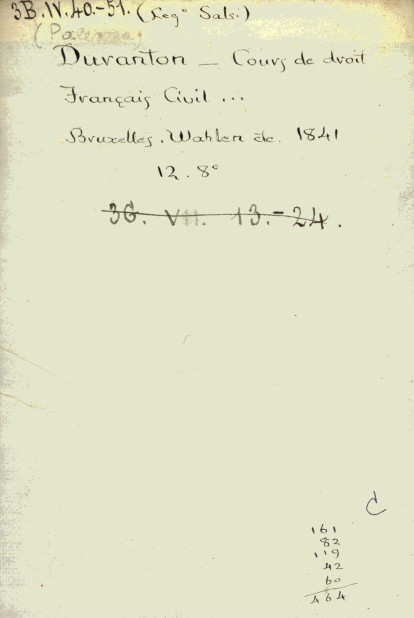 3B.IV.40.-51. (Legº Sals.)
Duranton — Cours de droit
Français Civil ...
Bruxelles. Wahlen &c. 1841
12. 8º
3G. VII. 13.-24.
C
161
82
119
42
60
464